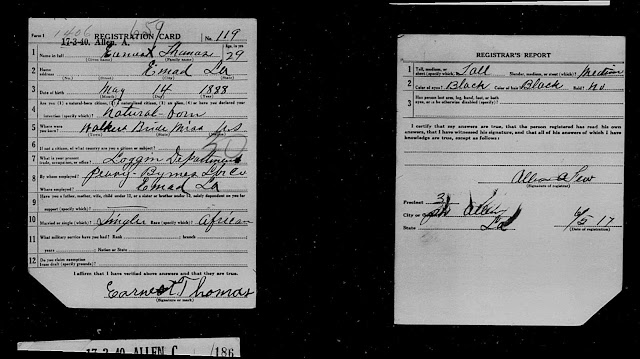 Form 1 1406 1259 REGISTRATION CARD No. 119
17-3-40. Allen, A.
1 Name in full Earnest Thomas Age, in yrs. 29
(Given name) (Family name)
2 Home address Emad La
(No.) (Street) (City) (State)
3 Date of birth May 14 1888
(Month) (Day) (Year)
4 Are you (1) a natural-born citizen, (2) a naturalized citizen, (3) an alien, (4) or have you declared your
intention (specify which)? Natural-born
5 Where were you born? Walkers Bridge Miss U.S
(Town) (State) (Nation)
6 If not a citizen, of what country are you a citizen or subject?
7 What is your present trade, occupation, or office? Loggin Department
8 By whom employed? Peavy-Byrnes Lbr Co
Where employed? Emad La
9 Have you a father, mother, wife, child under 12, or a sister or brother under 12, solely dependent on you for
support (specify which)?
10 Married or single (which)? Single Race (specify which)? African
11 What military service have you had? Rank ; branch
years ; Nation or State
12 Do you claim exemption from draft (specify grounds)?
I affirm that I have verified above answers and that they are true.
Earnest Thomas
(Signature or mark)
17-3-40. ALLEN C /186
REGISTRAR'S REPORT
1 Tall, medium, or short (specify which)? Tall Slender, medium, or stout (which)? Medium
2 Color of eyes? Black Color of hair? Black Bald? No
3 Has person lost arm, leg, hand, foot, or both eyes, or is he otherwise disabled (specify)?
I certify that my answers are true, that the person registered has read his own
answers, that I have witnessed his signature, and that all of his answers of which I have
knowledge are true, except as follows:
(Signature of registrar)
Precinct 3
City or Allen
State La 6/5-17
(Date of registration)